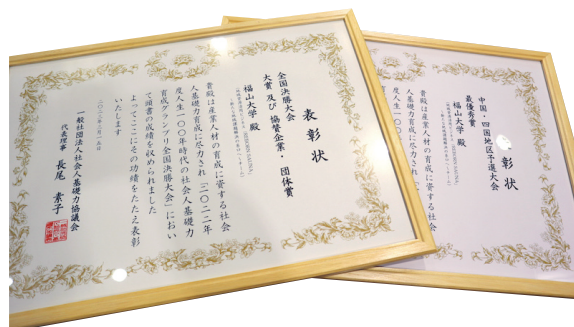 表彰状
全国決勝大会
大賞 及び 協賛企業・団体賞
福山大学 殿
貴殿は産業人材の育成に資する社会
人基礎力育成に尽力され「二〇二二年
度人生一〇〇年時代の社会人基礎力
育成グランプリ全国決勝大会」におい
て頭書の成績を収められました
よってここにその功績をたたえ表彰
いたします
一般社団法人社会人基礎力協議会
代表理事 長尾 素子
彰状
中国・四国地区予選大会
最優秀賞
福山大学 殿
貴殿は産業人材の育成に資する社会
人基礎力育成に尽力され
度人生一〇〇